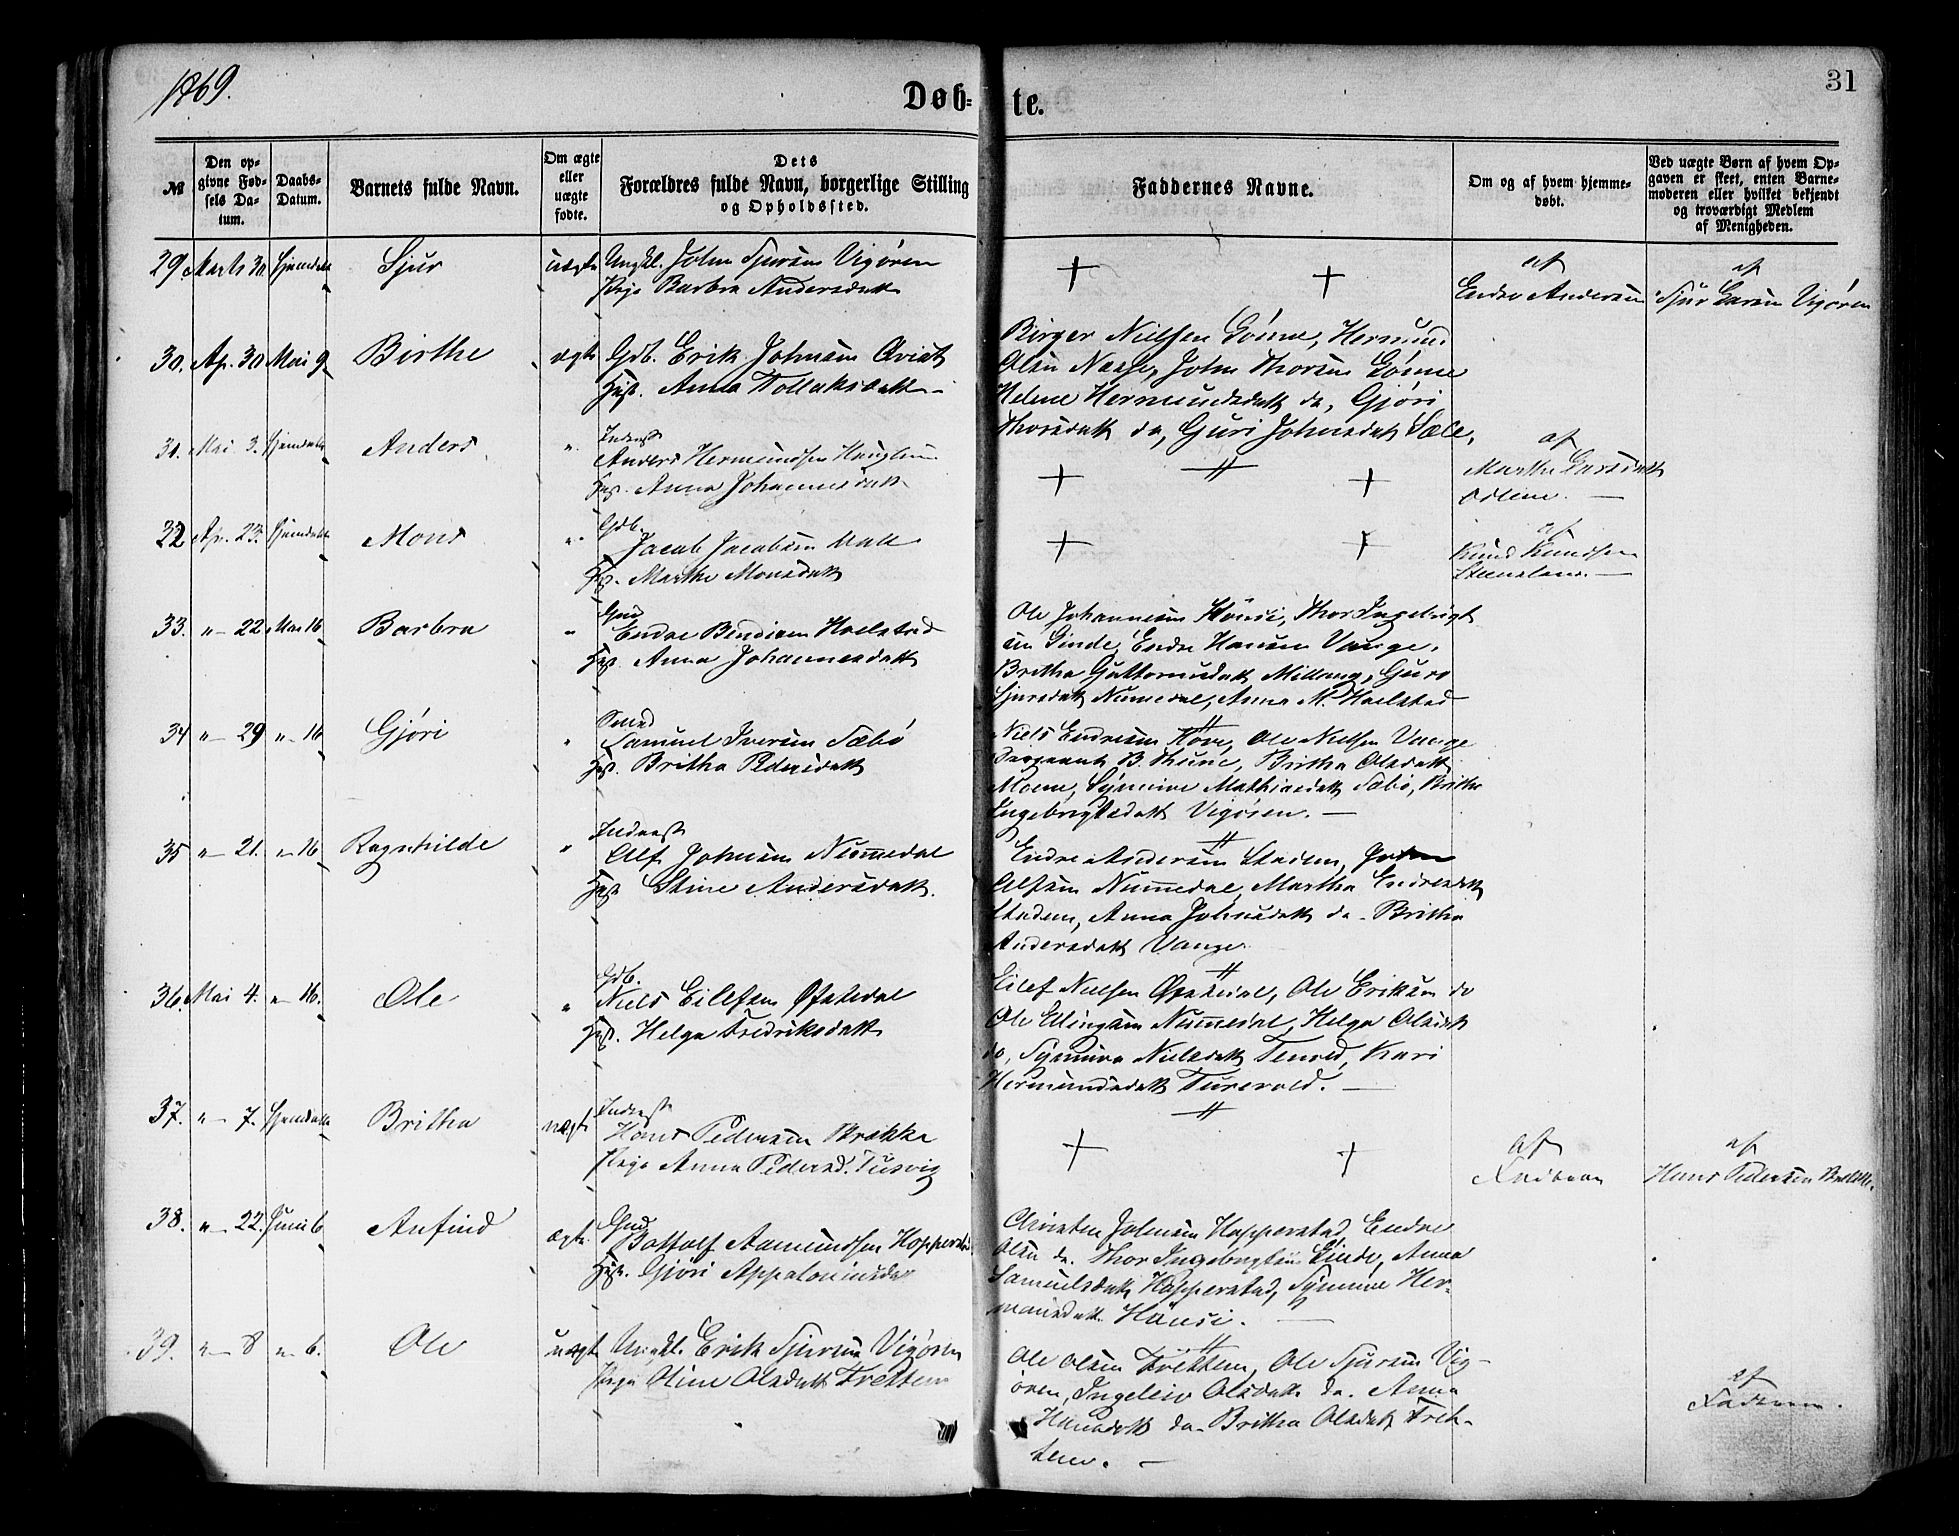 1869.
Døb-
te.
31
№
Den op-
givne Fød-
sels Da-
tum.
Daabs-
Datum.
Barnets fulde Navn.
Om ægte
eller
uægte
fødte.
Dets
Forældres fulde Navn, borgerlige Stilling
og Opholdssted.
Faddernes Navne.
Om og af hvem hjemme-
døbt.
Ved uægte Børn af hvem Op-
gaven er skeet, enten Barne-
moderen eller hvilket bekjendt
og troværdigt Medlem
af Menigheden.
29. Marts 30 Hjemdøbt Sjur uægte Ungkl. John Sjursen Vigøren
Pige Barbra Andersdatt
+ +
af
Endre Andersen
af
Sjur Larsen Vigøren
30. Ap. 30 Mai 9 Birthe ægte Gdb. Erik Johnsen
Hust. Anna Tollaksdatt
Birger Nielsen Hermund
Olsen John Thorsen
Helene Hermundsdatt do, Gjøri
Thorsdatt do, Guri Johnsdatt Sæle,
31. Mai 3. Hjemdøbt Anders " Inderst
Anders Hermundsen Hauglum
Hust. Anna Johannesdatt
+ +
af
Marthe Larsdatt
32 Ap. 23. Hjemdøbt Mons " Gdb.
Jacob Jacobsen
Hust. Marthe Monsdatt
+ +
af
Knud Knudsen
33. " 22 Mai 16 Barbra " Gmd
Endre Hoelstad
Hust. Anna Johannesdatt
Ole Johannesen Thor Ingebrigt
sen Linde, Endre Hansen Vange,
Britha Guttormsdatt Guro
Sjursdatt Nummedal, Anna M. Hoelstad
34 " 29 " 16 Gjøri " Smed
Samuel Iversen Sæbø
Hust. Britha Pedersdatt
Niels Endresen Ole Nielsen Vange
B. Britha Olsdatt
Moene, Synneve Mathiasdatt Sæbø, Brithe
Ingebrigtsdatt Vigøren.
35 " 21. " 16 Ragnhilde " Inderst
Alf Johnsen Nummedal
Hust Stine Andersdatt.
Endre Andersen Stadem, John
Alfsen Nummedal, Martha Endresdatt
Stadem, Anna Johnsdatt do. Britha
Andersdatt Vange.
36. Mai 4. " 16. Ole " Gdb.
Niels Eilefsen Øfstedal
Hust. Helga Fredriksdatt
Eilef Nielsen Øfstedal, Ole Eriksen do
Ole Ellingsen Nummedal, Helga Olsdatt
do, Synneva Nielsdatt Kari
Hermundsdatt
37. " 7. Hjemdøbt Britha uægte Inderst
Hans Pedersen
Pige Anna Pedersd. Tusvig
+ +
af
Faderen
af
Hans Pedersen
38. " 22. Juni 6 Anfind ægte Gmd
Botholf Aamundsen Hopperstad
Hust. Gjøri Appaloniusdatt
Christen Johnsen Hopperstad, Endre
Olsen do. Thor Ingebrigtsen Linde, Anna
Samuelsdatt Hopperstad, Synneve Her-
mansdatt
39. " 8 " 6. Ole uægte Ungkl. Erik Sjursen Vigøren
Pige Stine Olsdatt Trettem
Ole Olsen Trettem, Ole Sjursen Vig-
øren, Ingeleiv Olsdatt do. Anna
Hansdatt do. Britha Olsdatt Tret-
tem.
af
Faderen.